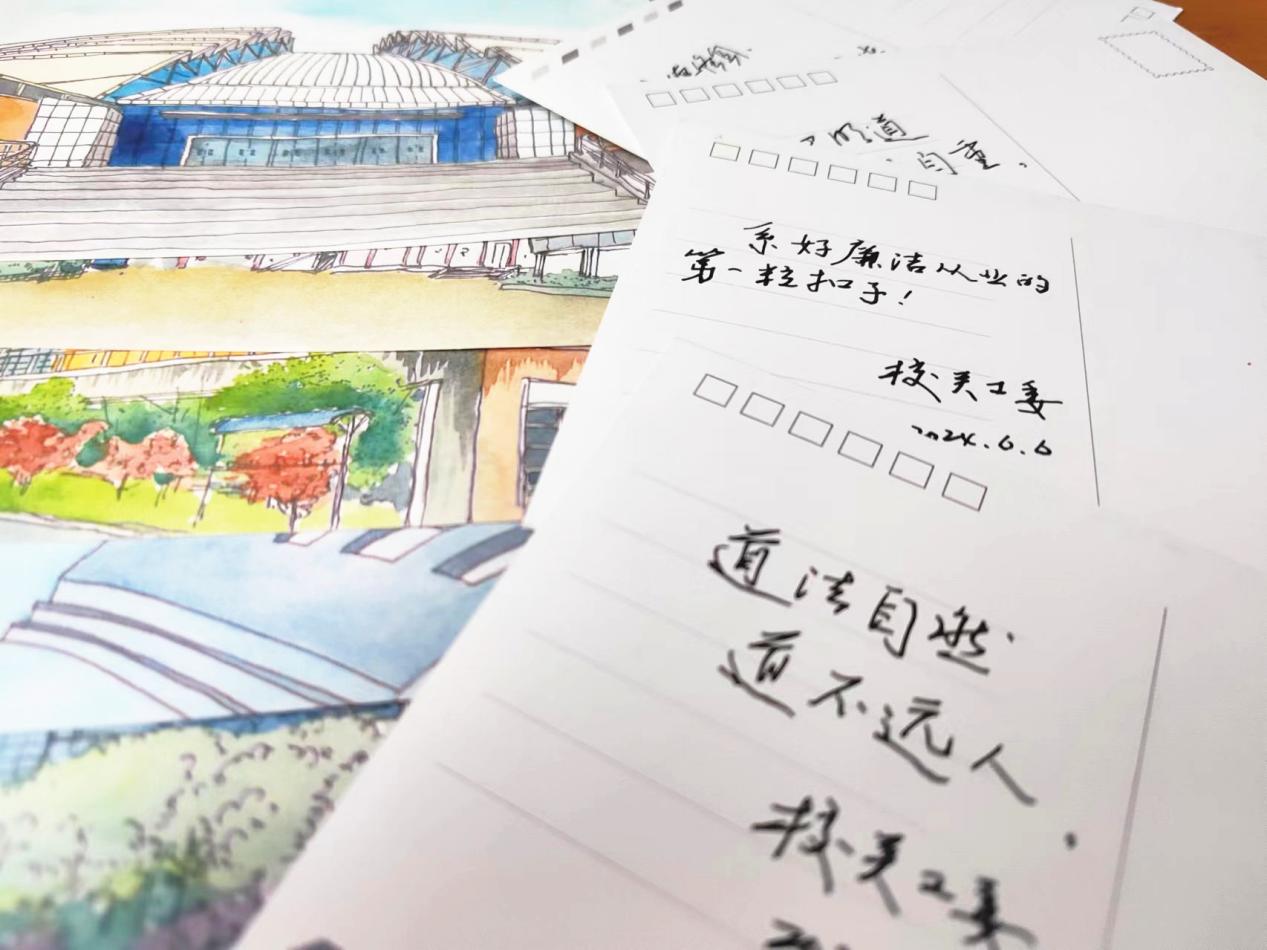 明道
自重
系好廉洁从业的
第一粒扣子!
校关工委
2024.6.6
道法自然
道不远人
校关工委